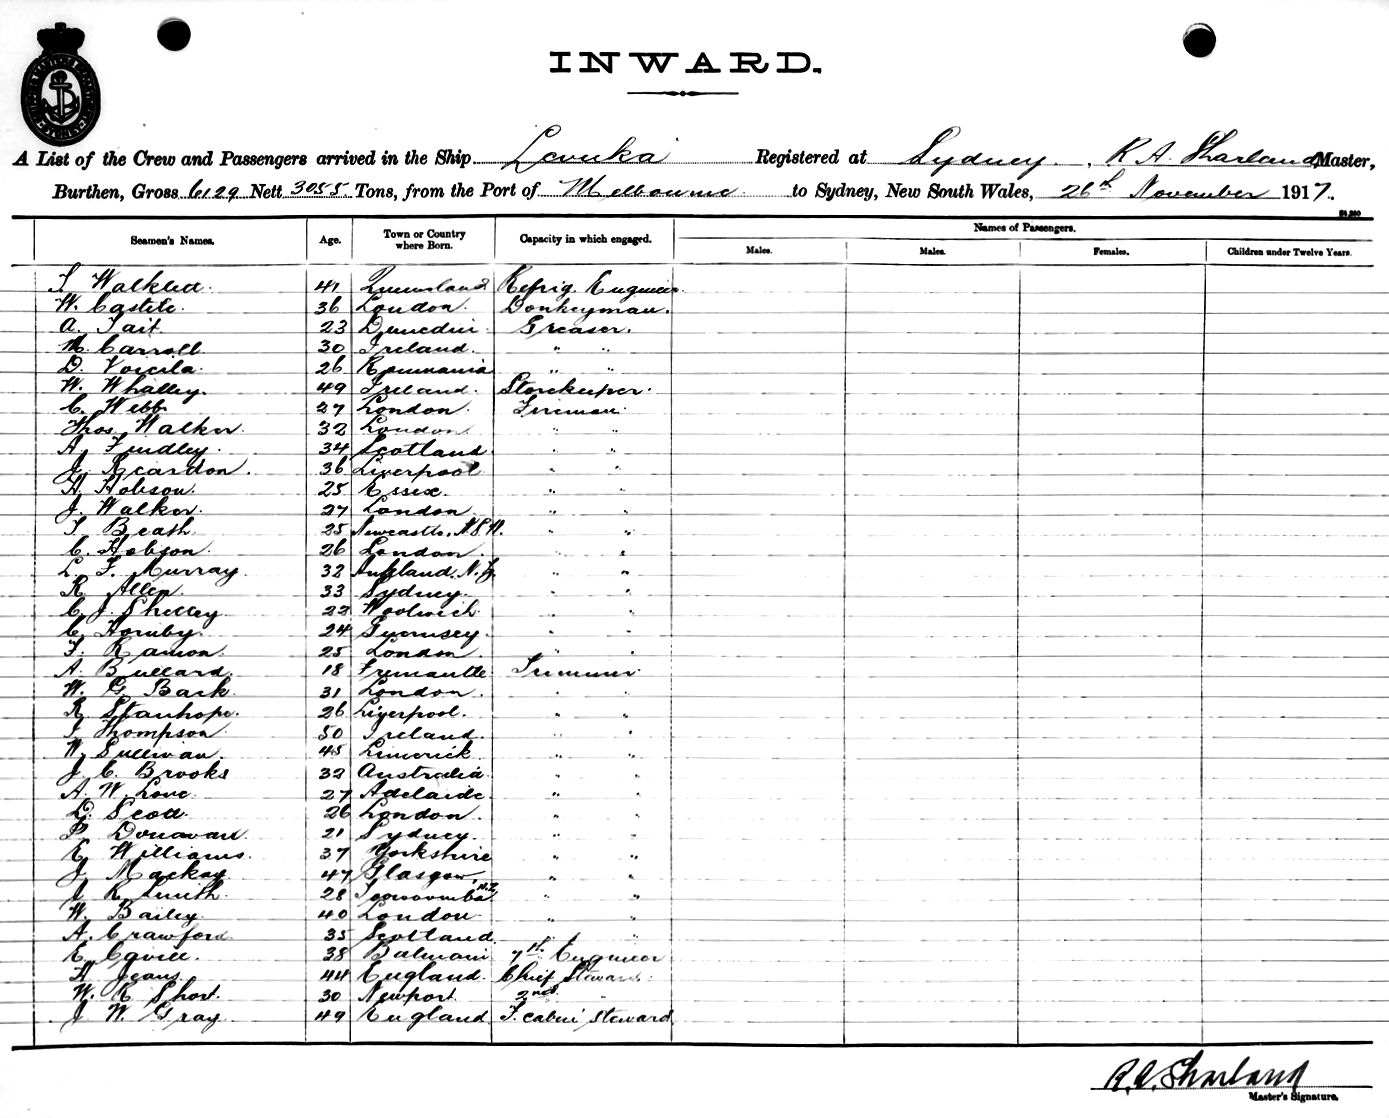 INWARD.
A List of the Crew and Passengers arrived in the Ship Levuka Registered at Sydney. , R A. Sharland Master,
Burthen, Gross 6129 Nett 3055 Tons, from the Port of Melbourne to Sydney, New South Wales, 26th November 1917.
Seamen's Names. Age. Town or Country where Born. Capacity in which engaged. Names of Passengers.
Males. Males. Females. Children under Twelve Years.
41 Queensland Refrig. Engineer.
W. Castile. 36 London. Donkeyman.
A. Tait. 23 Dunedin. Greaser.
M. Carroll 30 Ireland. " "
D. Voicila. 26 Roumania " "
W. Whalley. 49 Ireland. Storekeeper.
C. Webb. 27 London. Fireman.
Thos. Walker. 32 London. " "
A. Findley. 34 Scotland. " "
J. Reardon. 36 Liverpool " "
H. Hobson. 25 Essex. " "
J. Walker. 27 London. " "
T. Beath. 25 Newcastle. N.S.W. " "
C. Hobson. 26 London. " "
L. F. Murray. 32 Auckland N.Z. " "
R. Allen. 33 Sydney. " "
C. J. Shelley. 22 Woolwich. " "
C. Hornby. 24 Guernsey. " "
F. Ramon. 25 London. " "
A. Bullard. 18 Fremantle. Trimmer.
W. G. Bark 31 London. " "
R. Stanhope. 26 Liverpool. " "
Thompson. 50 Ireland. " "
W. Sullivan. 45 Limerick. " "
J. C. Brooks 32 Australia. " "
A. W. Love. 27 Adelaide. " "
Scott. 26 London. " "
P. Donavan. 21 Sydney. " "
E. Williams. 37 Yorkshire " "
J. Mackay. 47 Glasgow. " "
J. R. Smith. 28 Toowoomba " "
W. Bailey. 40 London. " "
A. Crawford. 35 Scotland. " "
E. Cavill. 38 Balmain 7th Engineer
H. Jeans. 44 England. Chief Steward.
W. R. Short. 30 Newport. 2nd "
J. W. Gray 49 England F. cabin steward
R. A. Sharland
Master's Signature.